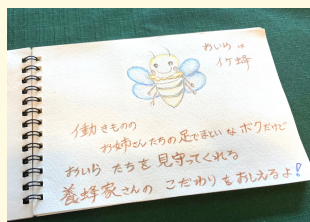 おいらは
イケ蜂
働きものの
お姉さんたちの足でまといなボクだけど
おいらたちを見守ってくれる
養蜂家さんのこだわりをおしえるよ!